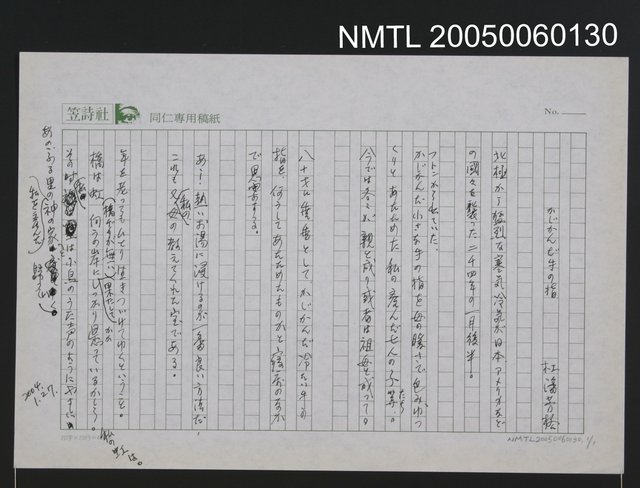 NMTL 20050060130
笠詩社
同仁専用稿紙
No.
かじかんだ手の指
杜潘芳格
北極から猛烈な寒気冷気が日本アメリカなど
の國々を襲った二千四年の一月後半。
かじかんだ小さな手の指を母の膝で包みゆっ
くりとあたためた私の産んだ七人の子等。
今では各々が親と成り或者は祖母と成って。
八十才に
として かじかんだ冷たい手の
指を、何うしてあたためたものかと寝床のなか
で思案する。
あゝ！熱いお湯に浸けるのが一番良い方法だ、
これも父母の教えてくれた宝である。
年を老ってもひとり生きつづけてゆくということ。
橋は虹
何うの岸にしっかり
ているかしら。
その時
は小鳥のうた声のようにやさしい
私の虹は。
あのふる里の神の家
私を産んだ
歸
2004.
1.27.
NMTL20050060130, 1/1